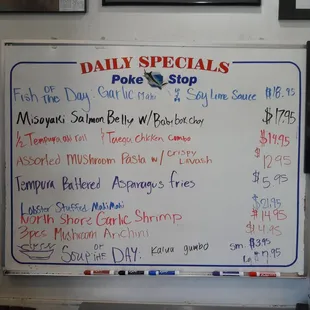 DAILY SPECIALS
Poke Stop
Fish OF THE Day Garlic Mahi w/ Soy Lime Sauce $18.95
Misoyaki Salmon Belly w/ Baby bok choy $17.95
1/2 Tempura ahi roll 1/2 Chicken Combo $14.95
Assorted Mushroom Pasta w/ crispy Lavash $12.95
Tempura Battered Asparagus fries $5.95
Lobster Stuffed MahiMahi $21.95
North Shore Garlic Shrimp $14.95
3pcs Mushroom Arichini $14.95
SOUP OF THE DAY: Kalua gumbo Sm. $3.95
L. $7.95